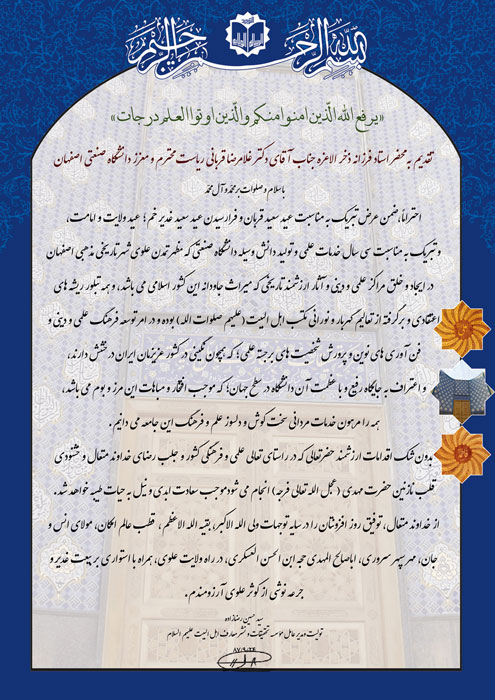 بسم الله الرحمن الرحیم
«یرفع الله الّذین امنوا منکم والّذین اوتوا العلم درجات»
تقدیم به محضر استاد فرزانه ذخر الاعزه جناب آقای دکتر غلامرضا قربانی ریاست محترم و معزز دانشگاه صنعتی اصفهان
با سلام و صلوات بر محمد و آل محمد
احتراماً، ضمن عرض تبریک به مناسبت عید سعید قربان و فرارسیدن عید سعید غدیر خم؛ عید ولایت و امامت،
و تبریک به مناسبت سی سال خدمات علمی و تولید دانش وسیله دانشگاه صنعتی که مظهر تمدن علوی شهر تاریخی مذهبی اصفهان
در ایجاد و خلق مراکز علمی و دینی و آثار ارزشمند تاریخی که میراث جاودانه این کشور اسلامی می باشد، و همه تبلور ریشه های
اعتقادی و برگرفته از تعالیم گهربار و نورانی مکتب اهل البیت (علیهم صلوات الله) بوده و در امر توسعه فرهنگ علمی و دینی و
فن آوری های نوین و پرورش شخصیت های برجسته علمی؛ که همچون نگینی در کشور عزیزمان ایران درخشش دارند،
و اعتراف به جایگاه رفیع و با عظمت آن دانشگاه در سطح جهان؛ که موجب افتخار و مباهات این مرز و بوم می باشد،
همه را مرهون خدمات مردانی سخت کوش و دلسوز علم و فرهنگ این جامعه می دانیم.
بدون شک اقدامات ارزشمند حضرتعالی که در راستای تعالی علمی و فرهنگی کشور و جلب رضای خداوند متعال و خشنودی
قلب نازنین حضرت مهدی (عجل الله تعالی فرجه) انجام می شود موجب سعادت ابدی و نیل به حیات طیبه خواهد شد.
از خداوند متعال، توفیق روز افزونتان را در سایه توجهات ولی الله الاکبر، بقیه الله الاعظم، قطب عالم امکان، مولای انس و
جان، مهر سپهر سروری، اباصالح المهدی حجه ابن الحسن العسکری، در راه ولایت علوی، همراه با استواری بر بیعت غدیر و
جرعه نوشی از کوثر علوی آرزومندم.
سید حسین رضازاده
تولیت و مدیر عامل مؤسسه تحقیقات و نشر معارف اهل البیت علیهم السلام
۸۷/۹/۲۴